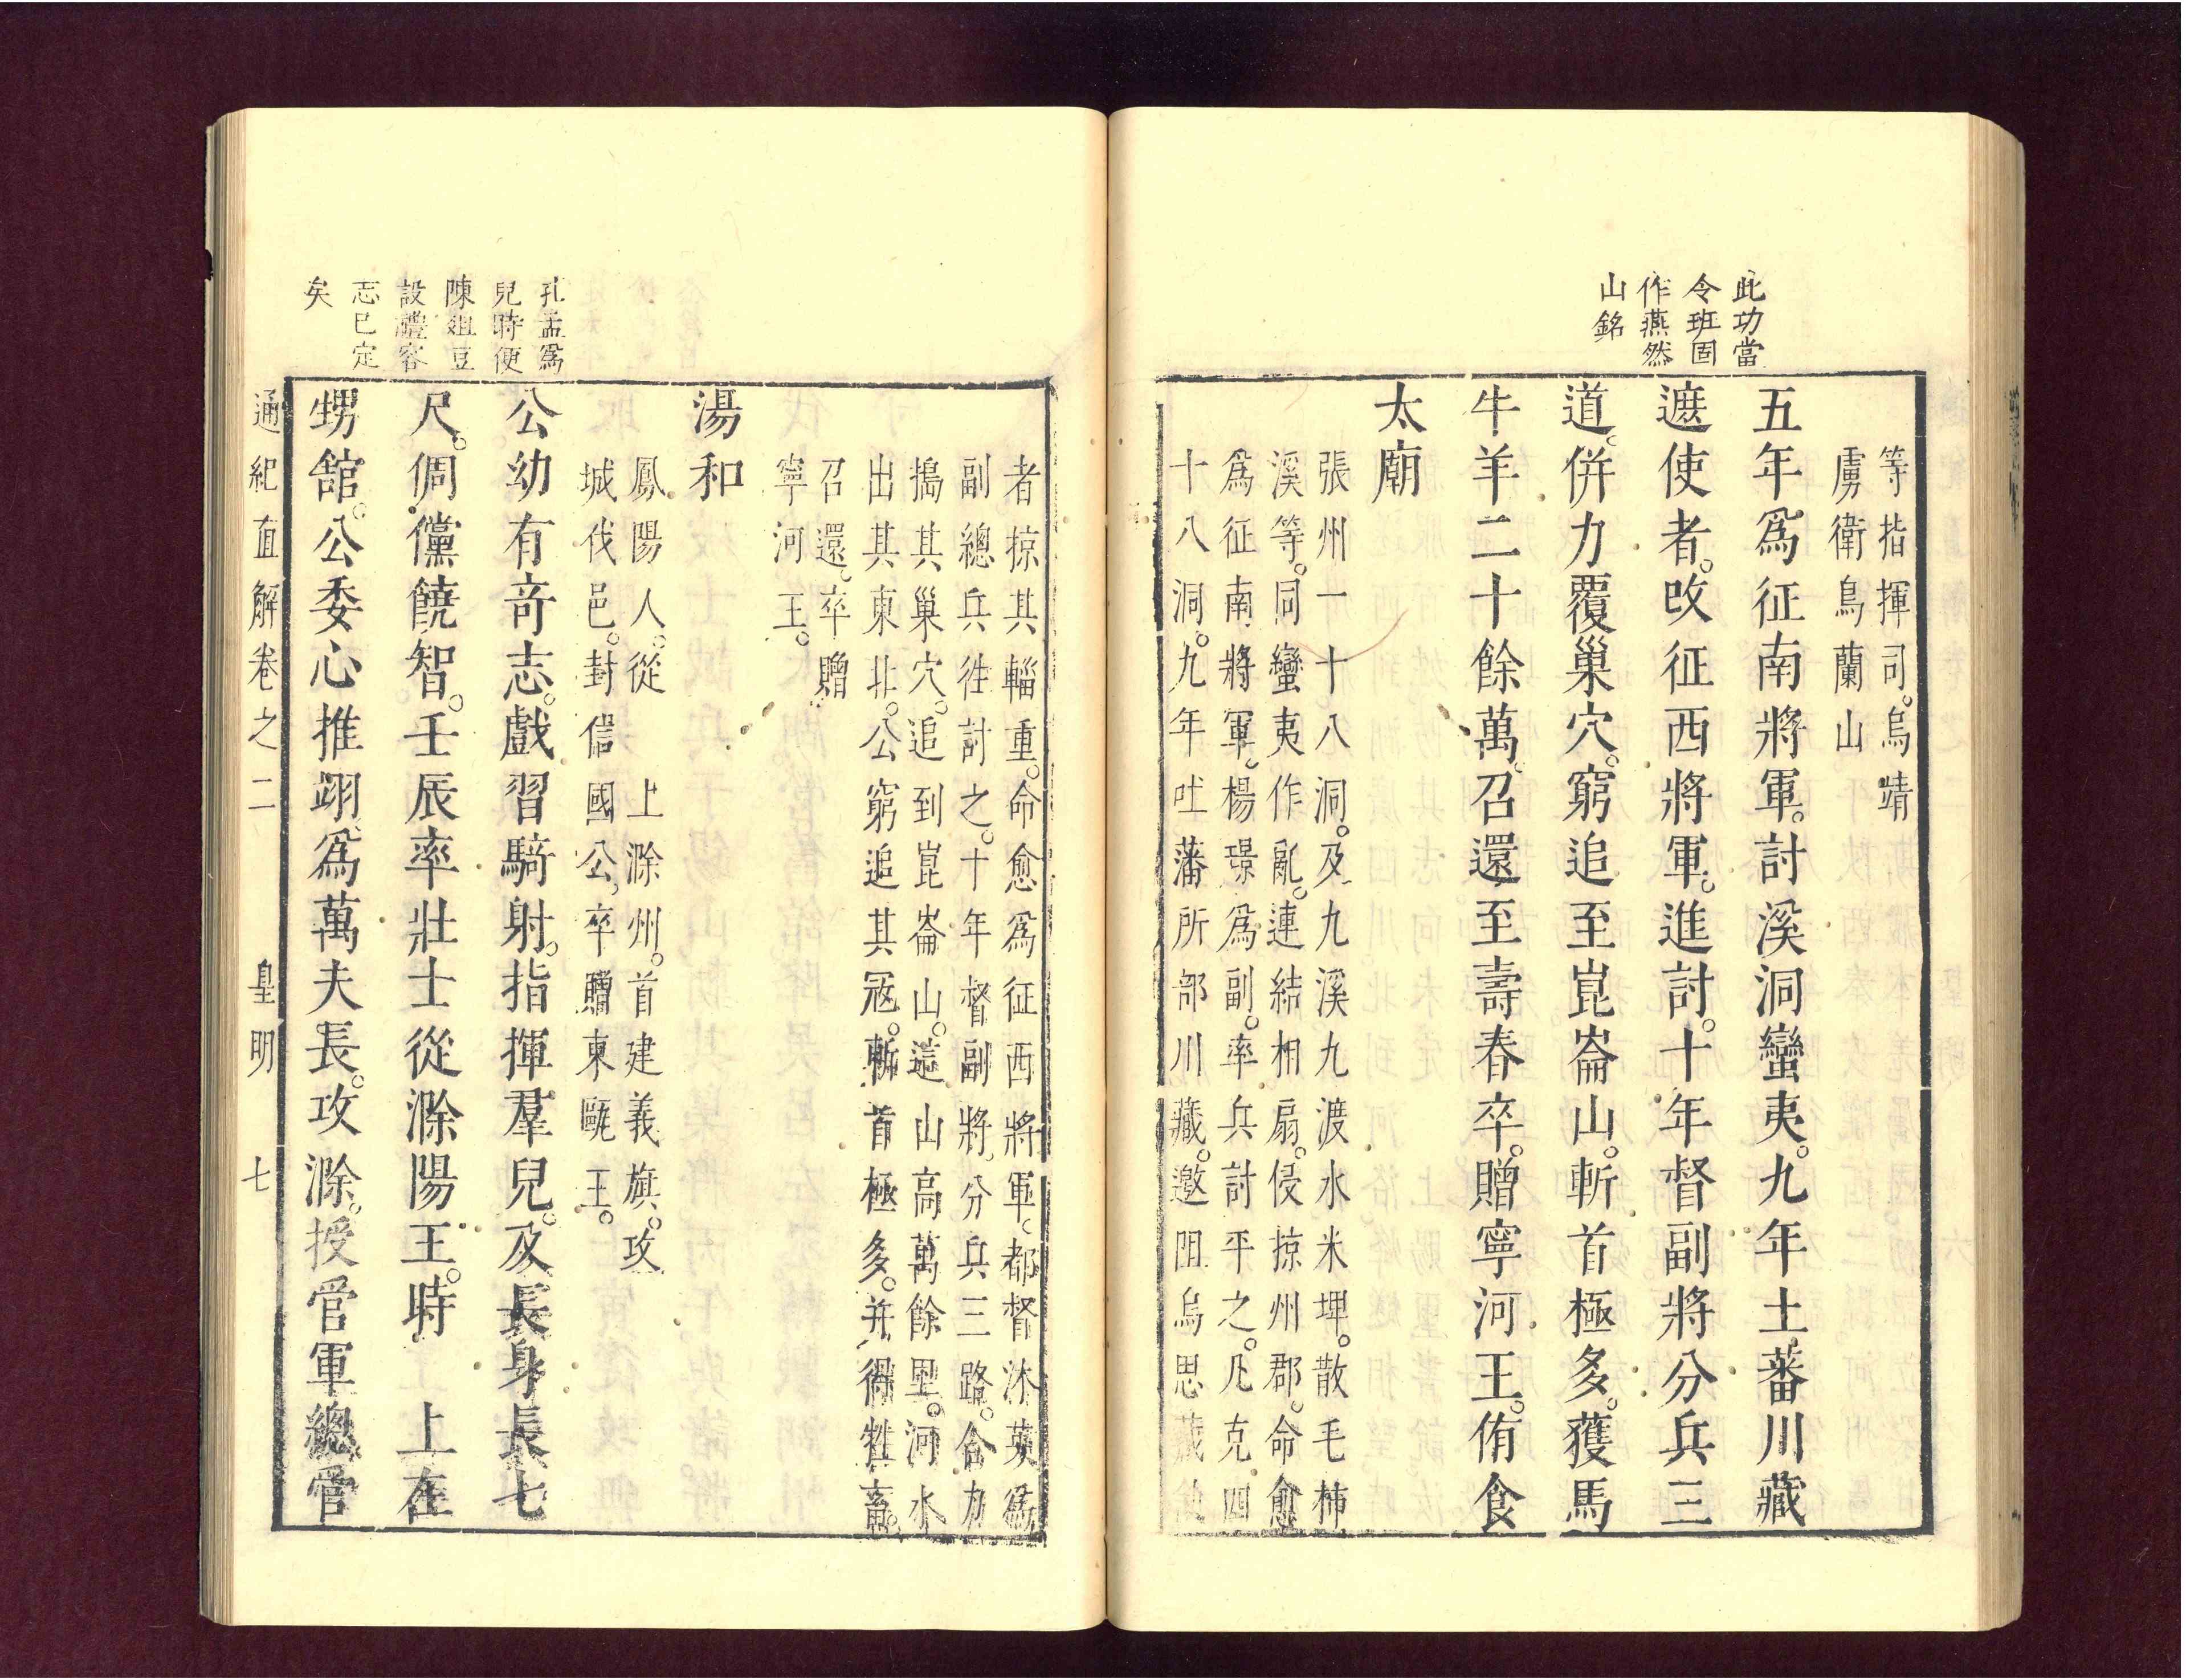 此功當
令班固
作燕然
山銘
等指揮司。烏靖
虜衛烏蘭山
五年爲征南將軍。討溪洞蠻夷。九年土蕃川藏
遮使者。改征西將軍。進討。十年督副將分兵三
道。併力覆巢穴。窮追至崑崙山。斬首極多。獲馬
牛羊二十餘萬。召還至壽春卒。贈寧河王。侑食
太廟
張州一十八洞。及九溪九渡水米坪。散毛柿
溪等。同蠻夷作亂。連結相扇。侵掠州郡。命愈
爲征南將軍。楊璟爲副。率兵討平之。凡克四
十八洞。九年吐蕃所部川藏。邀阻烏思藏使
者掠其輜重。命愈爲征西將軍。都督沐英爲
副總兵往討之。十年督副將。分兵三路。合力
搗其巢穴。追到崑崙山。這山高萬餘里。河水
出其東北。公窮追其冦。斬首極多。并得牲畜。
召還。卒贈
寧河王。
湯和
鳳陽人。從 上滁州。首建義旗。攻
城伐邑。封信國公。卒贈東甌王。
孔孟爲
兒時便
陳俎豆
設禮容
志已定
矣
公幼有奇志。戲習騎射。指揮羣兒。及長身長七
尺。倜儻饒智。壬辰率壯士從滁陽王。時 上在
甥館。公委心推翊。爲萬夫長。攻滁。授管軍總管
通紀直解卷之二 皇明 七